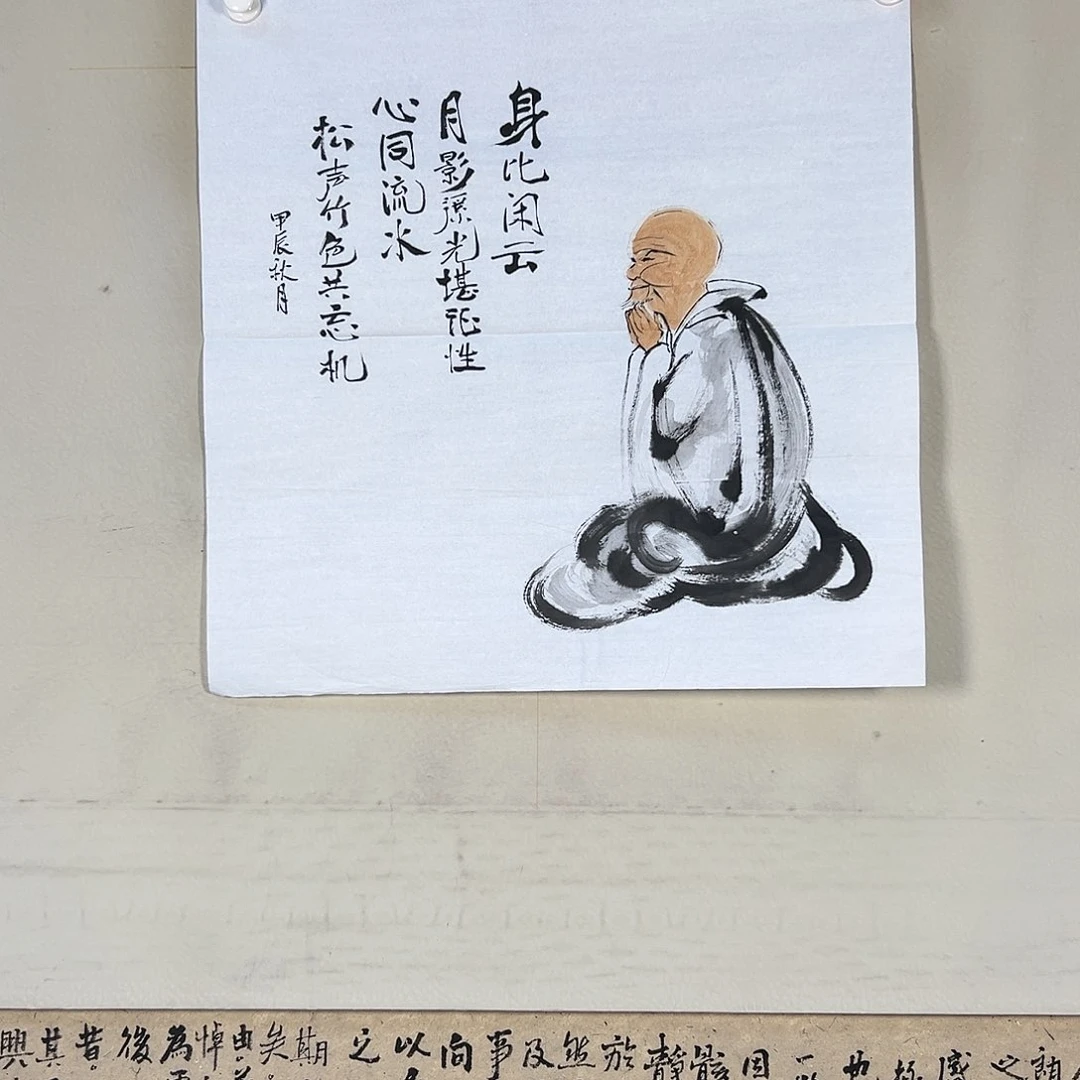 身比闲云
月影溪光堪证性
心同流水
松声竹色共忘机
甲辰秋月
之
感
因
骸
靜
於
然
及
事
向
以
之
期
矣
由
悼
為
後
昔
其
興